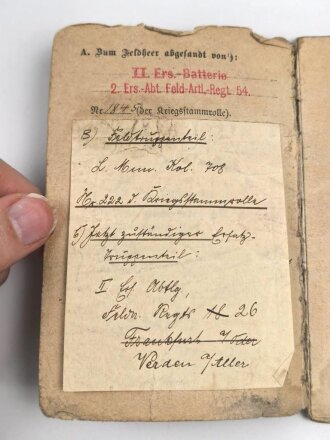 A. Zum Feldheer abgesandt von¹):
II. Ers.-Batterie
2. Ers.-Abt. Feld-Artl.-Regt. 54.
Nr. 1845 (der Kriegsstammrolle).
B) Feldtruppenteil:
L. Mun. Kol. 708
Nr 222 d. Kriegsstammrolle
b) Jetzt zuständiger Ersatz-
truppenteil:
II Ers Abtlg,
Felda. Regts 26
Frankfurt a/Oder
Verden a/Aller